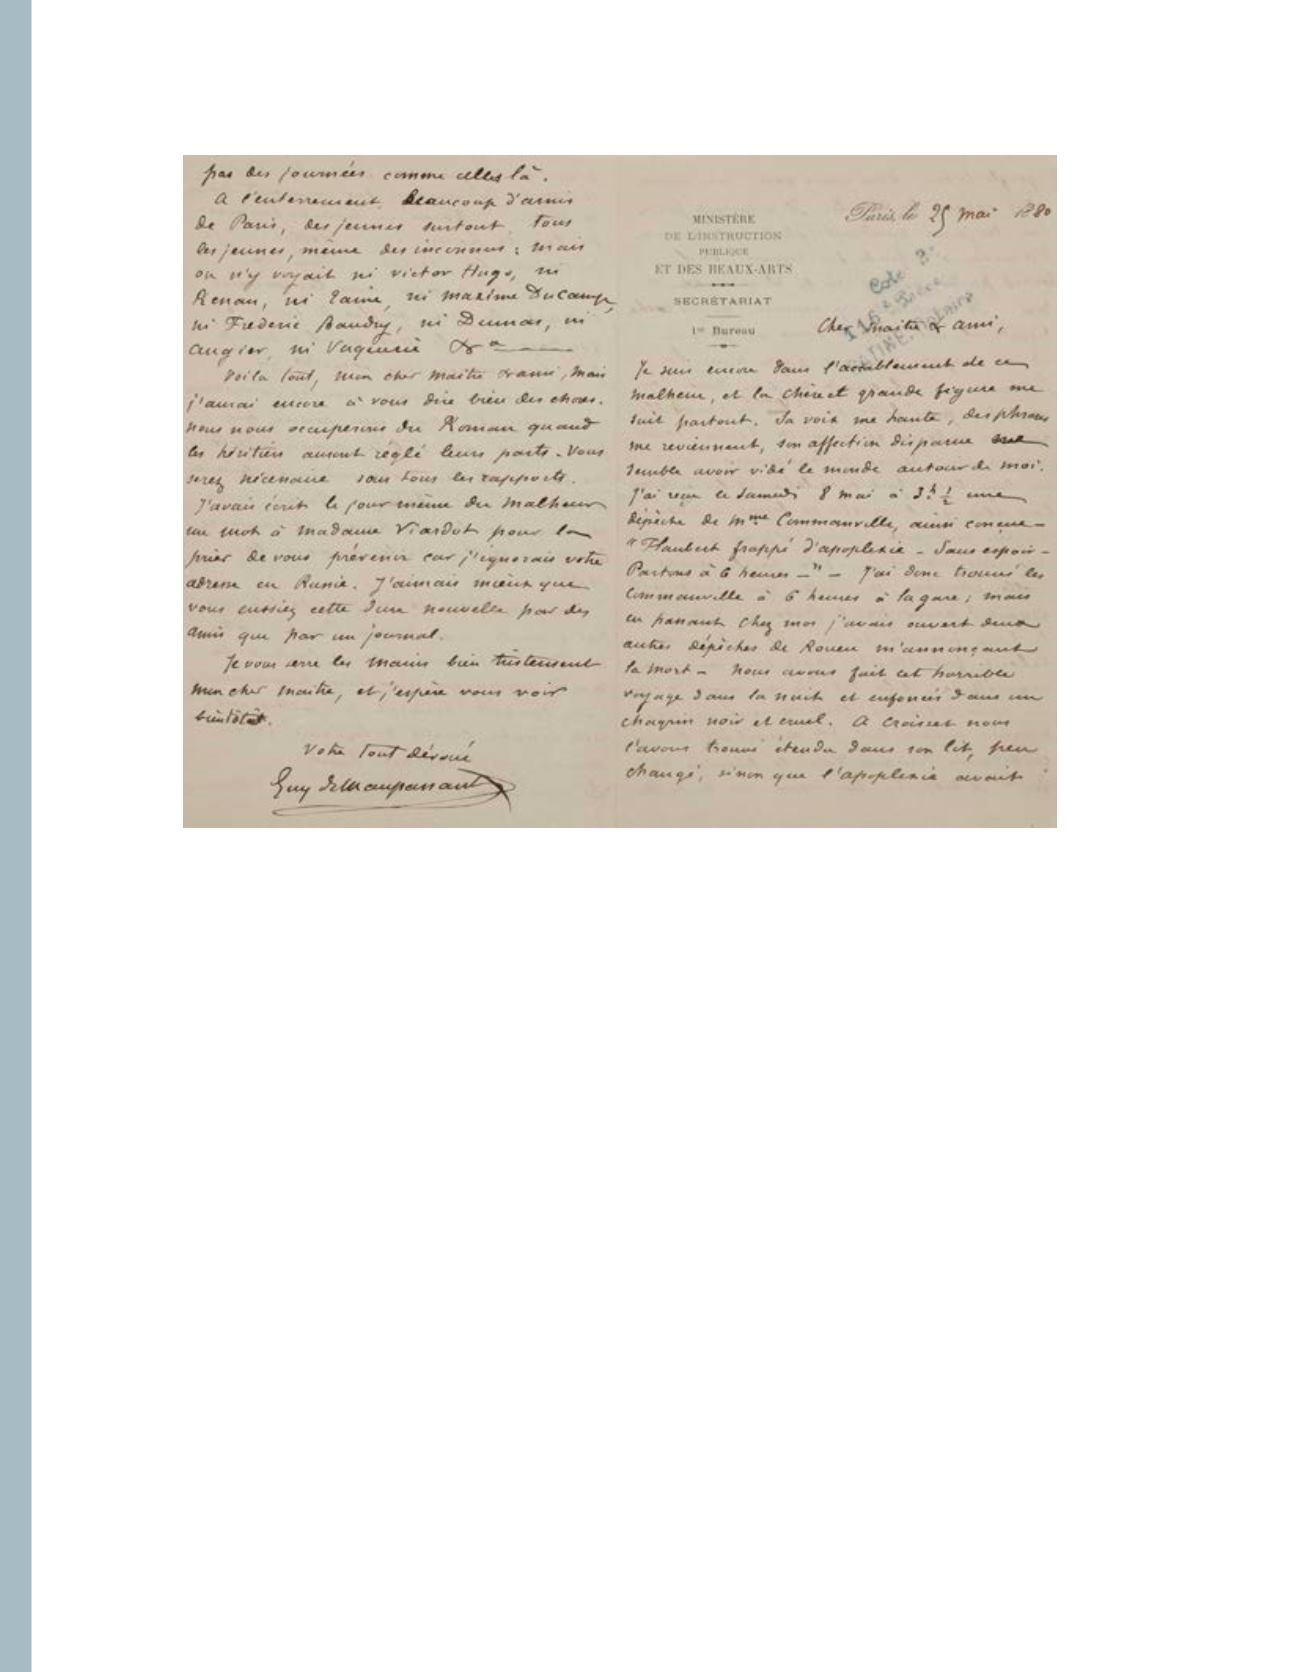 MINISTÈRE
DE L'INSTRUCTION
PUBLIQUE
ET DES BEAUX-ARTS
SECRÉTARIAT
1er Bureau
Paris, le 25 mai 1880
Cote 3e
116e Pièce
Cher Maitre & ami,
Je suis encore dans l'accablement de ce
malheur, et la chère et grande figure me
suit partout. Sa voix me hante, des phrases
me reviennent, son affection disparue me
semble avoir vidé le monde autour de moi.
J'ai reçu le Samedi 8 mai à 3h ½ une
dépèche de Mme Commanville, ainsi conçue –
"Flaubert frappé d'apoplexie – Sans espoir –
Partons à 6 heures –" – J'ai donc trouvé les
Commanville à 6 heures à la gare ; mais
en passant chez moi j'avais ouvert deux
autres dépèches de Rouen m'annonçant
la mort – Nous avons fait cet horrible
voyage dans la nuit et enfoncés dans un
chagrin noir et cruel. A Croisset nous
l'avons trouvé étendu dans son lit, peu
changé, sinon que l'apoplexie avait
pas des journées comme celles là.
A l'enterrement, Beaucoup d'amis
de Paris, des jeunes surtout, tous
les jeunes, même des inconnus ; mais
on n'y voyait ni Victor Hugo, ni
Renan, ni Taine, ni Maxime DuCamp,
ni Frederic Baudry, ni Dumas, ni
Augier, ni Vaquerie &a
Voila tout, mon cher maitre & ami, mais
j'aurai encore à vous dire bien des choses.
Nous nous occuperons du Roman quand
les héritiers auront réglé leurs parts. Vous
serez nécessaire sous tous les rapports.
J'avais écrit le jour même du malheur
un mot à madame Viardot pour la
prier de vous prévenir car j'ignorais votre
adresse en Russie. J'aimais mieux que
vous eussiez cette dure nouvelle par des
amis que par un journal.
Je vous serre les mains bien tristement
mon cher maitre, et j'espère vous voir
bientôt.
Votre tout dévoué
Guy de Maupassant